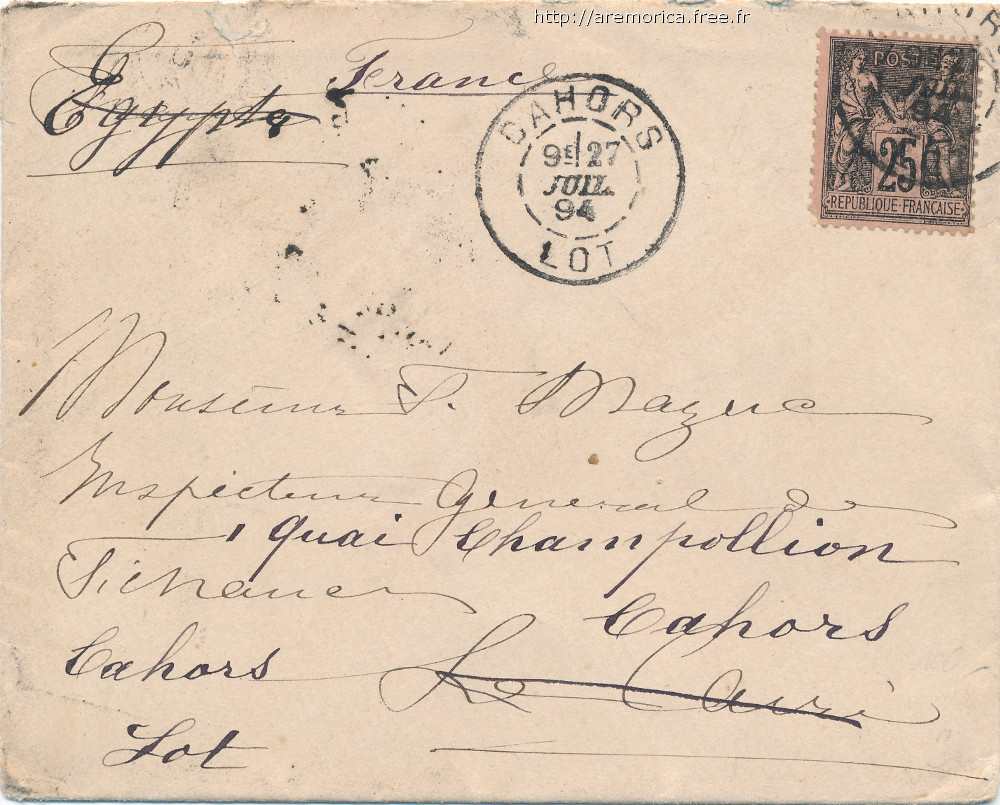 http://aremorica.free.fr
France
Egypte
CAHORS
9E 27
JUIL.
94
LOT
POSTES
JUIL
94
25
REPUBLIQUE · FRANÇAISE
Monsieur F. Mazuc
Inspecteur General de
1 quai Champollion
Finances
Cahors
Cahors
Le Caire
Lot